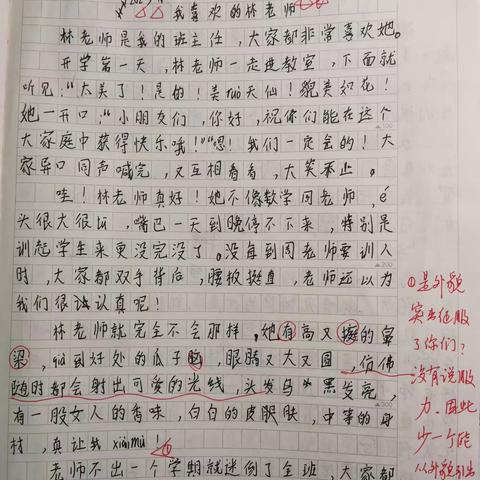 我喜欢的林老师
林老师是我的班主任,大家都非常喜欢她。
开学第一天,林老师一走进教室,下面就
听见:“太美了!是的!美ruò天仙!貌美如花!
她一开口:“小朋友们,你好,祝你们能在这个
大家庭中获得快乐哦!”“嗯!我们一定会的!大
家异口同声喊完,又互相看看,大笑不止。
哇!林老师真好!她不像数学周老师,é
头很大很凹,嘴巴一天到晚停不下来,特别是
训起学生来更没完没了。没每到周老师要训人
时,大家都双手背后,腰板挺直,老师还以为
我们很认真呢!
林老师就完全不会那样,她有高又挺的鼻
梁,qià到好处的瓜子脸,眼睛又大又圆,仿佛
随时都会射出可爱的光线,头发乌黑发亮,
有一股女人的香味,白白的皮肤,中等的身
材,真让我xiànmù!
老师不出一个学期就迷倒了全班,大家都
①是外貌
突出征服
了你们?
没有说服
力。因此
少一个能
从外貌引出